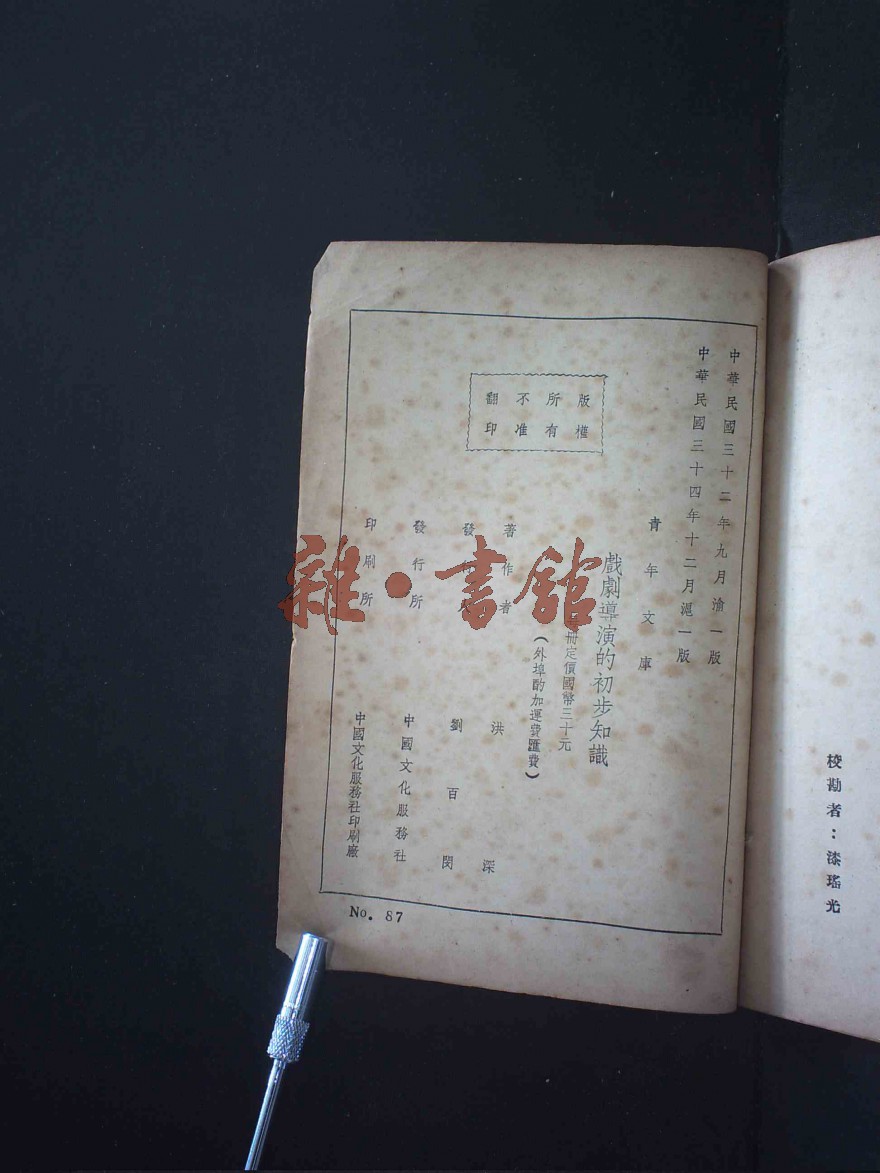 校勘者：漆瑤光
中華民國三十二年九月渝一版
中華民國三十四年十二月滬一版
青年文庫
戲劇導演的初步知識
冊定價國幣三十元
(外埠酌加運費匯費)
版權
所有
不准
翻印
著作者 洪深
發 劉百閔
發行所 中國文化服務社
印刷所 中國文化服務社印刷廠
No. 87
雜·書館